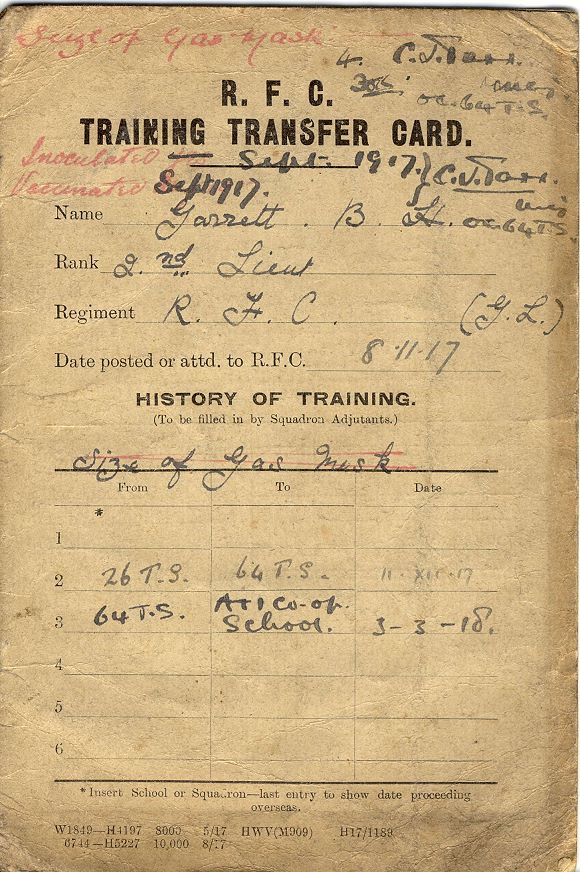 Size of Gas Mask 4. C.J.Tarr.
Maj.
OC.64T.S.
R. F. C.
TRAINING TRANSFER CARD.
Inoculated Sept. 1917. } C.J.Tarr.
Vaccinated Sept 1917. Maj
OC.64T.S.
Name Garrett. B. H.
Rank 2.nd Lieut
Regiment R. F. C. (G.L.)
Date posted or attd. to R.F.C. 8.11.17
HISTORY OF TRAINING.
(To be filled in by Squadron Adjutants.)
Size of Gas Mask
From To Date
*
1
2 26 T.S. 64 T.S. 11.XII.17
3 64 T.S. Arl Co-op. School. 3-3-18.
4
5
6
*Insert School or Squadron—last entry to show date proceeding
overseas.
W1849—H4197 8000 5/17 HWV(M909) H17/1189
6744—H5227 10,000 8/17